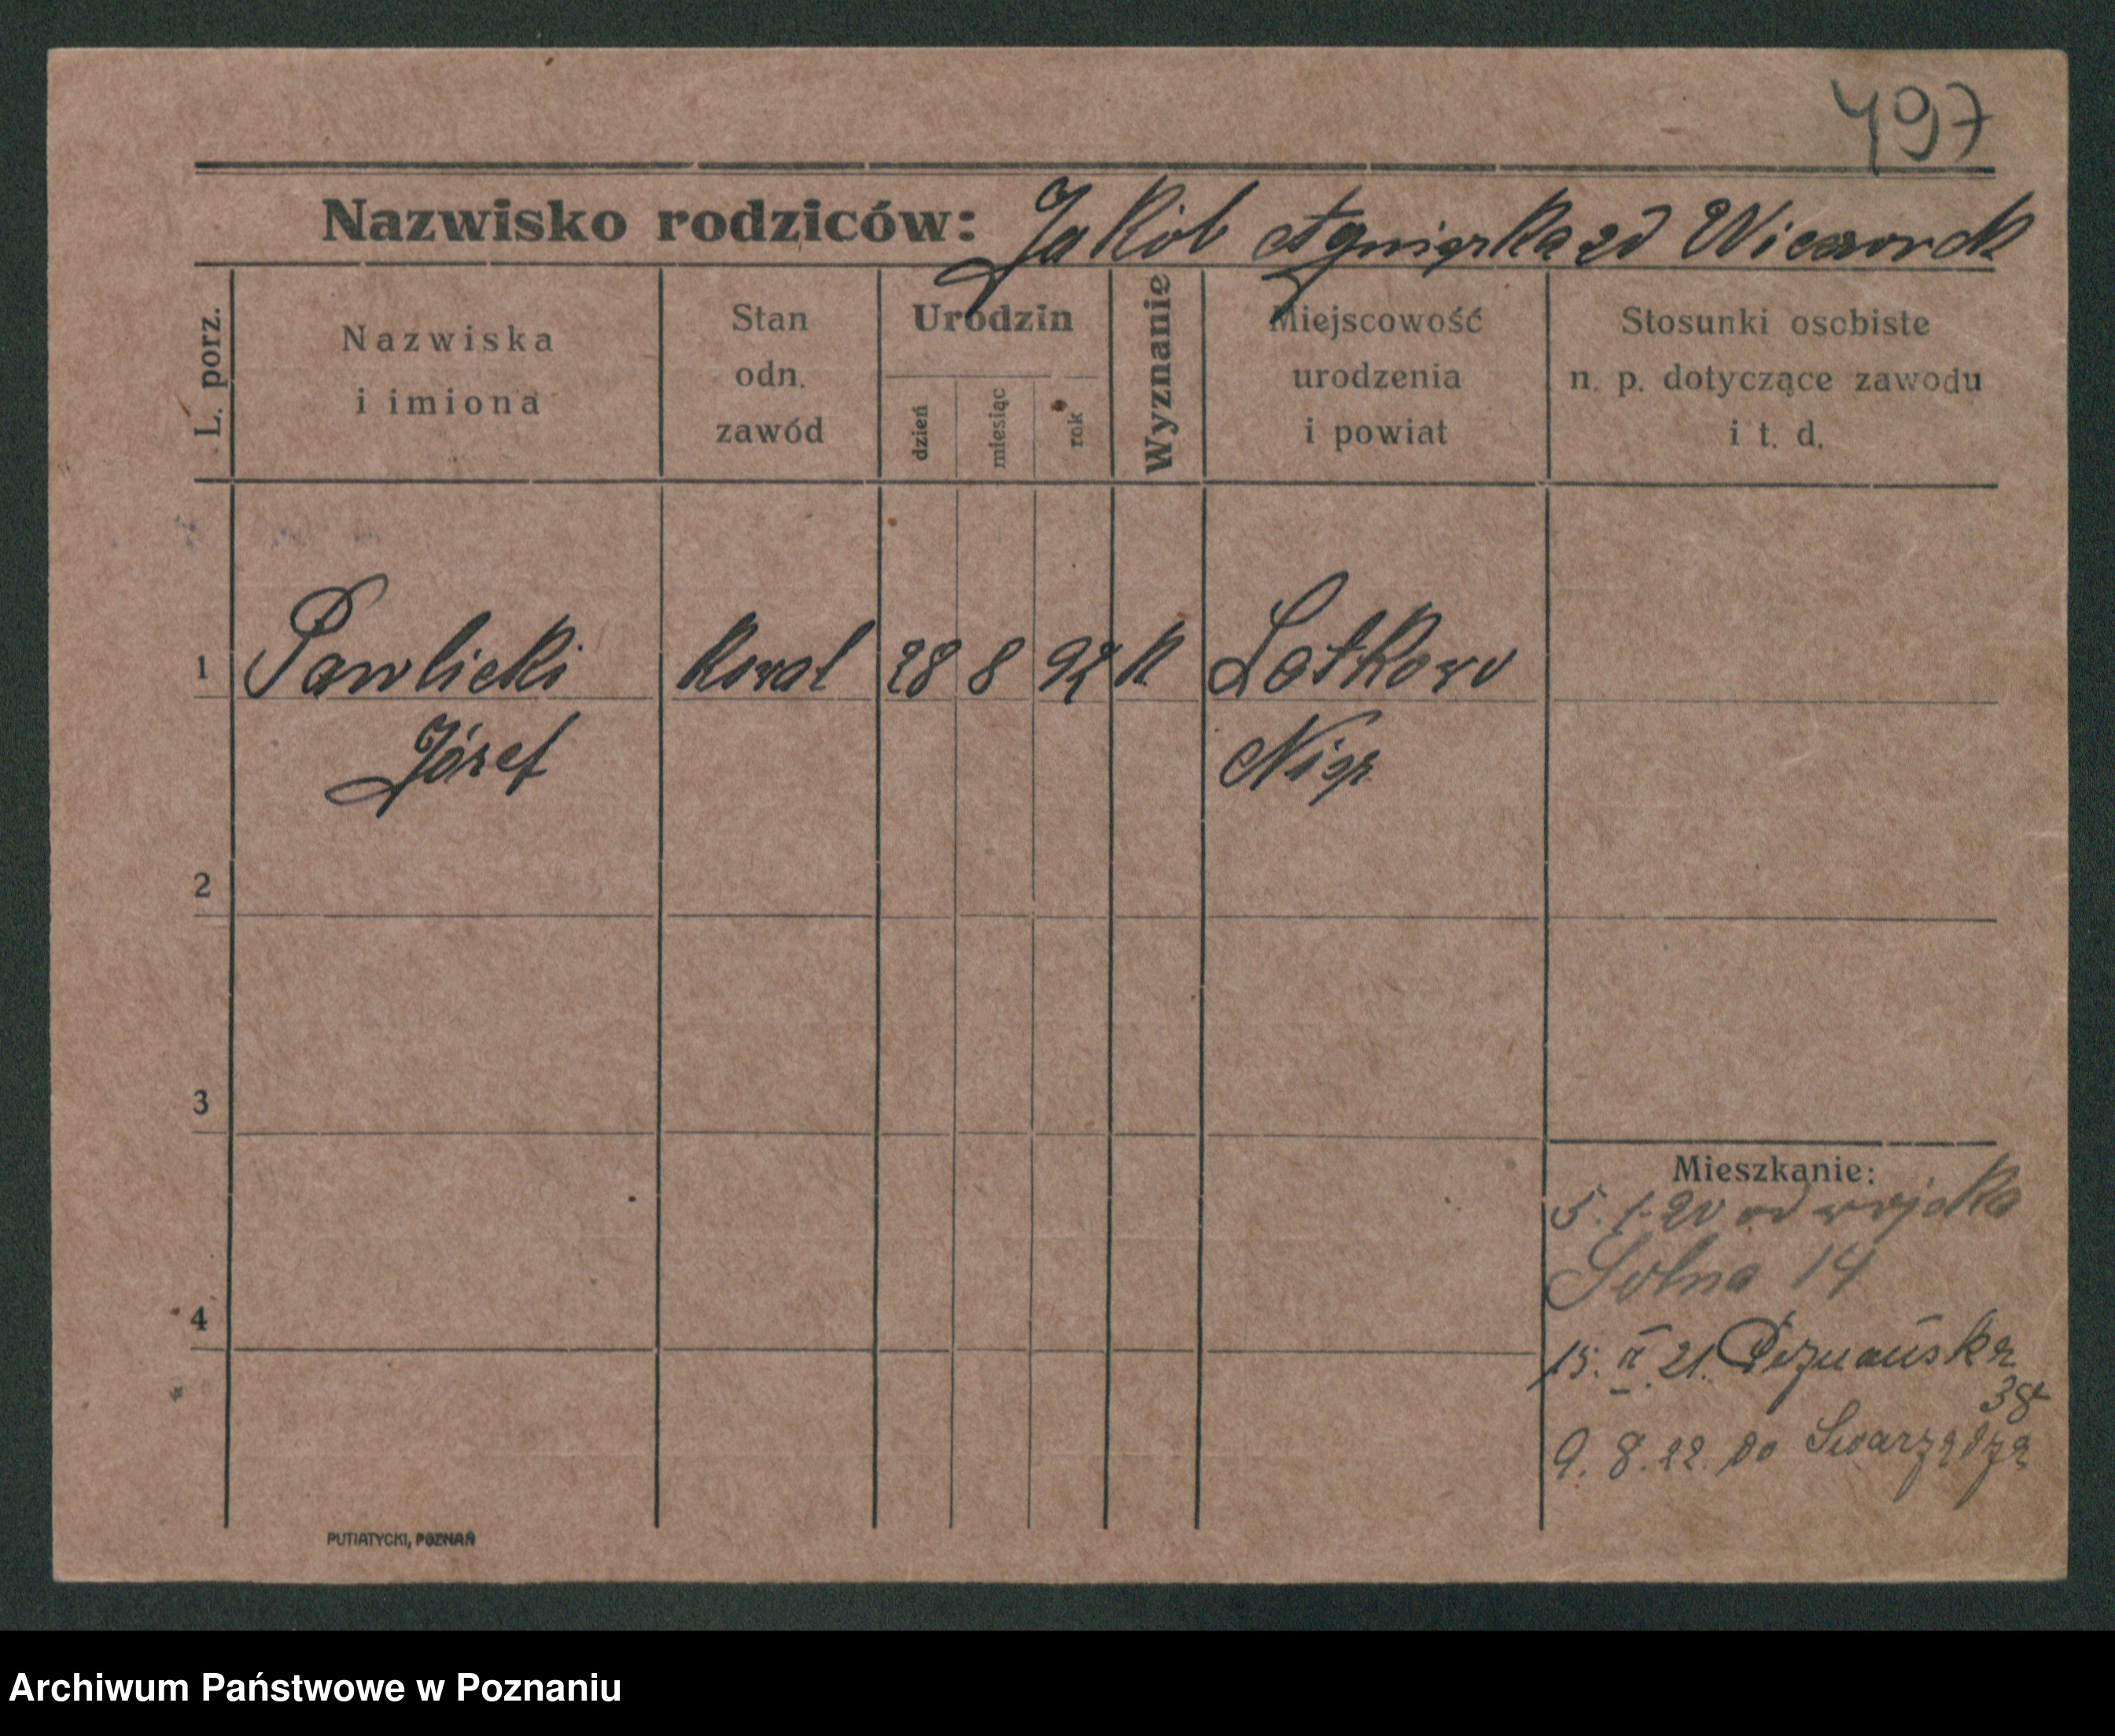 497
Nazwisko rodziców: Jakób Agnieszka zd Wieczorek
L. porz.
Nazwiska i imiona
Stan odn. zawód
Urodzin
dzień
miesiąc
rok
Wyznanie
Miejscowość urodzenia i powiat
Stosunki osobiste n. p. dotyczące zawodu i t. d.
1 Pawlicki kowal 28 8 92 k Latkowo
Józef
2
3
4
Mieszkanie:
5.1.20 od wojska
Solna 14
15. II. 21. Poznańska
38
9. 8. 22. do Swarzędza
PUTIATYCKI, POZNAŃ
Archiwum Państwowe w Poznaniu